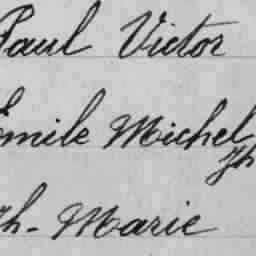 Paul Victor
Emile Michel Jh
Jh. Marie